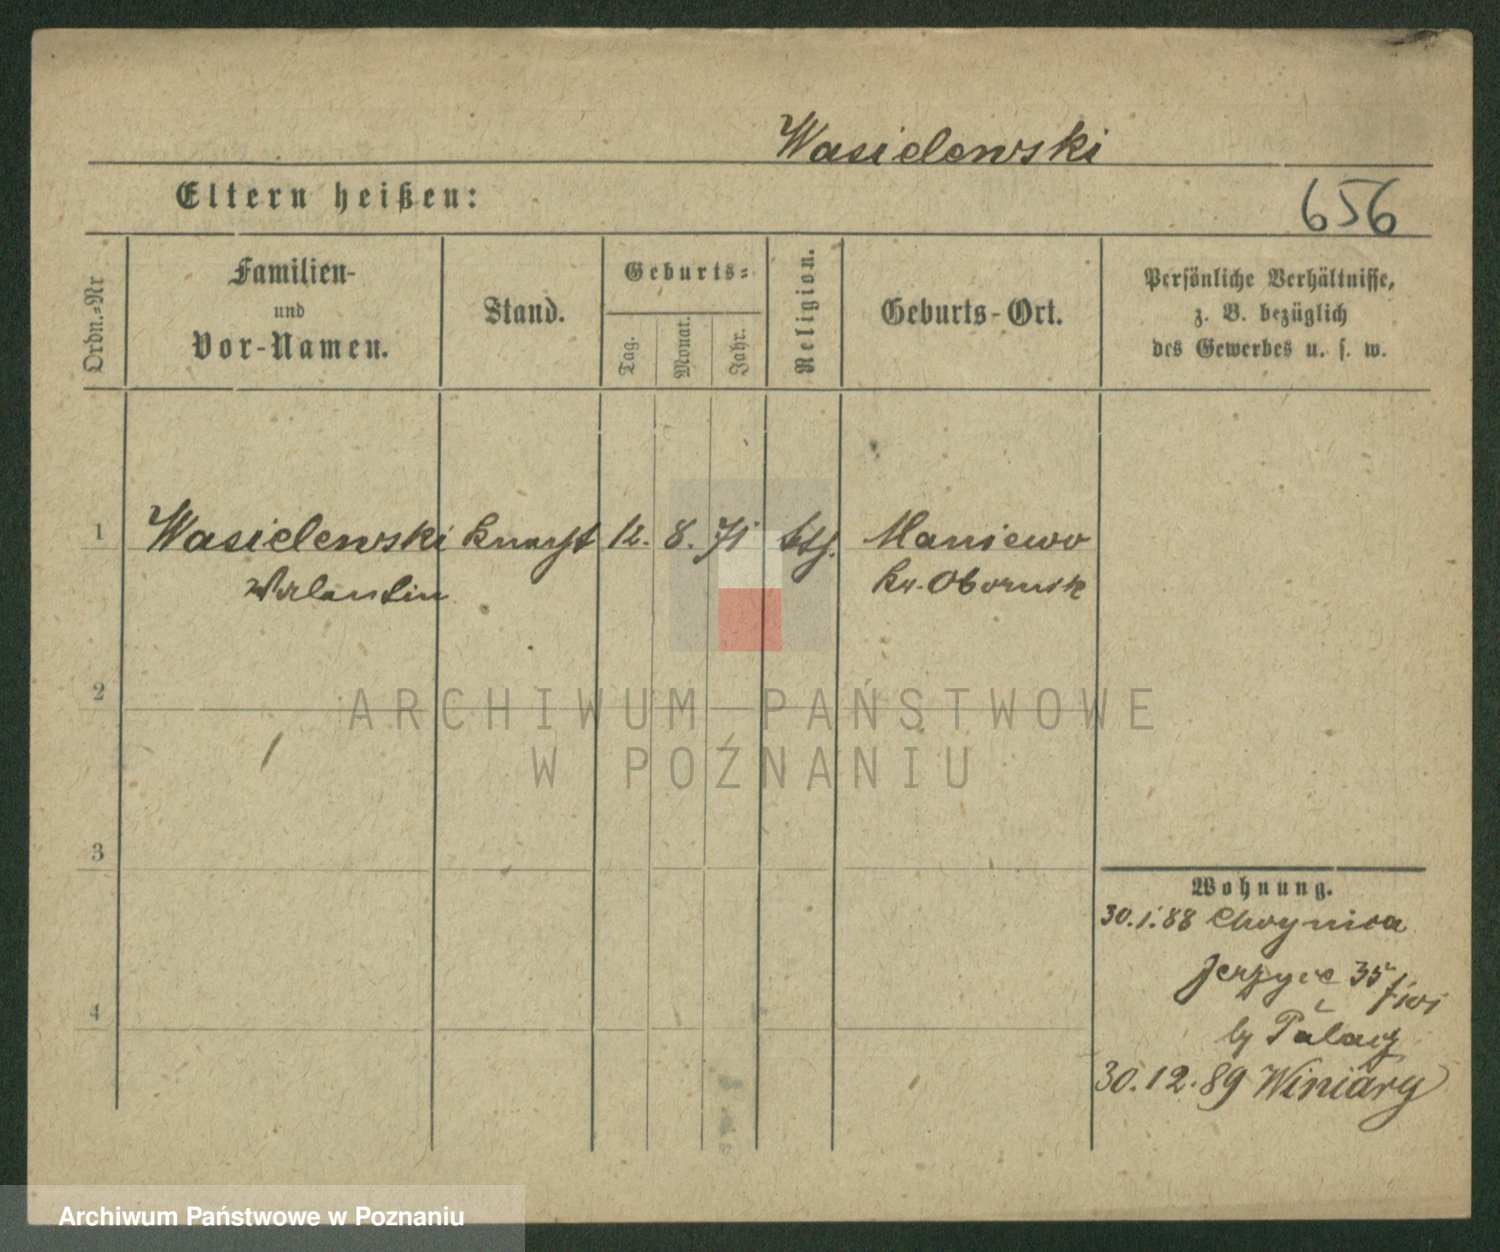 Wasielewski
Eltern heißen:
656
Ordn.-Nr
Familien-
und
Vor-Namen.
Stand.
Geburts-
Tag.
Monat.
Jahr.
Religion.
Geburts-Ort.
Persönliche Verhältnisse,
z. B. bezüglich
des Gewerbes u. s. w.
1 Wasielewski Knecht 12. 8. 71 kth. Maniewo
Valentin Kr. Obornik
2
ARCHIWUM PAŃSTWOWE
W POZNANIU
3
Wohnung.
30.1.88
Jerzyce 35
4
by
30.12.89 Winiary
Archiwum Państwowe w Poznaniu